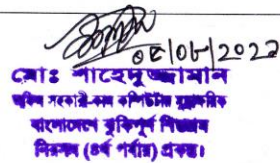 ০৪/০৮/২০২২
মোঃ শাহেদুজ্জামান
অফিস সহকারী-কাম কম্পিউটার মুদ্রাক্ষরিক
বাংলাদেশে ঝুঁকিপূর্ণ শিশুশ্রম
নিরসন (৪র্থ পর্যায়) প্রকল্প।